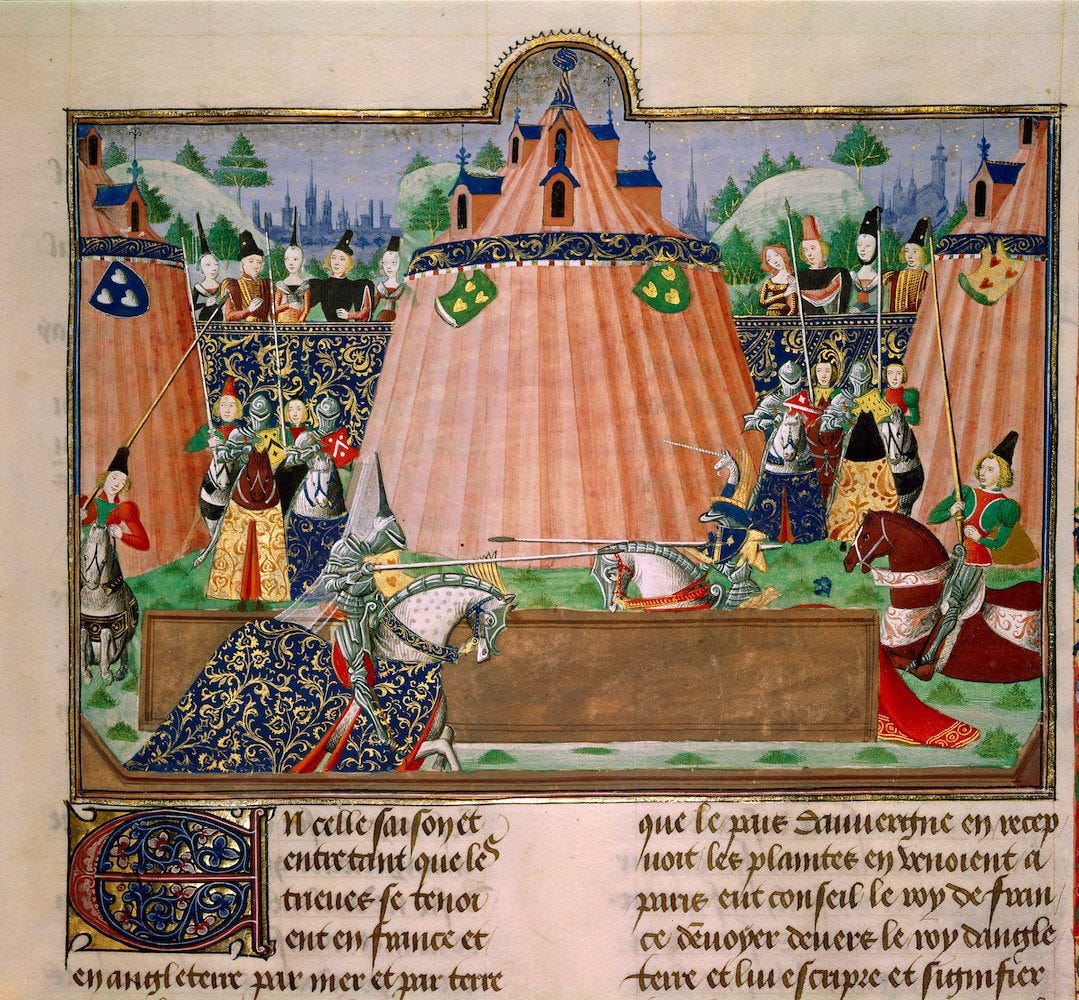 En celle saison et
entretant que les
trieues se tenoi
ent en france et
en angleterre par mer et par terre
que le pais dauuergne en recep
uoit les plaintes en venoient a
paris eut conseil le roy de fran
ce denuoyer deuers le roy dangle
terre et lui escripre et signifier